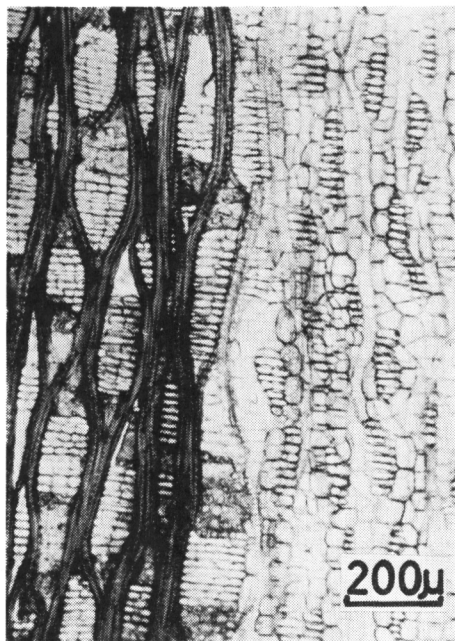 200μ